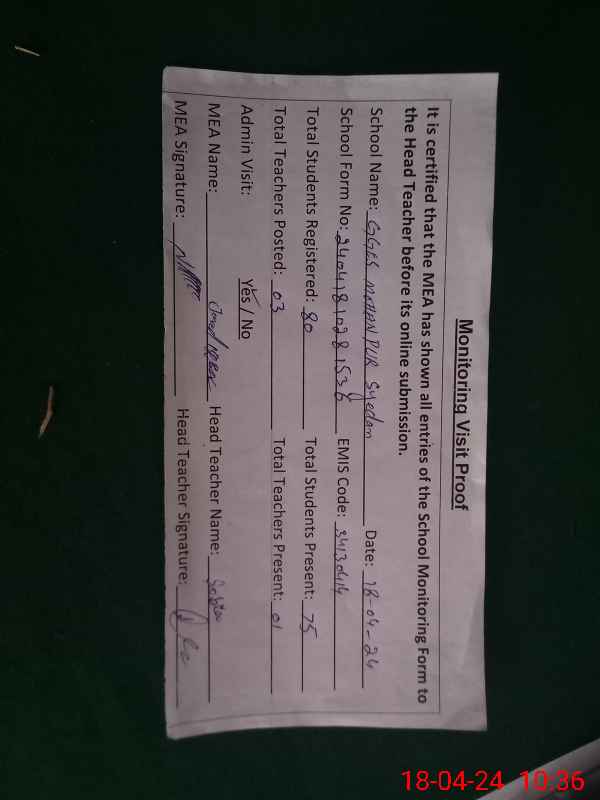 Monitoring Visit Proof
It is certified that the MEA has shown all entries of the School Monitoring Form to
the Head Teacher before its online submission.
School Name: GGES MOHAN PUR Syedan Date: 18-04-24
School Form No: 24041810281536 EMIS Code: 34130414
Total Students Registered: 80 Total Students Present: 75
Total Teachers Posted: 03 Total Teachers Present: 01
Admin Visit: Yes / No
MEA Name: Head Teacher Name:
MEA Signature: Head Teacher Signature:
18-04-24 10:36